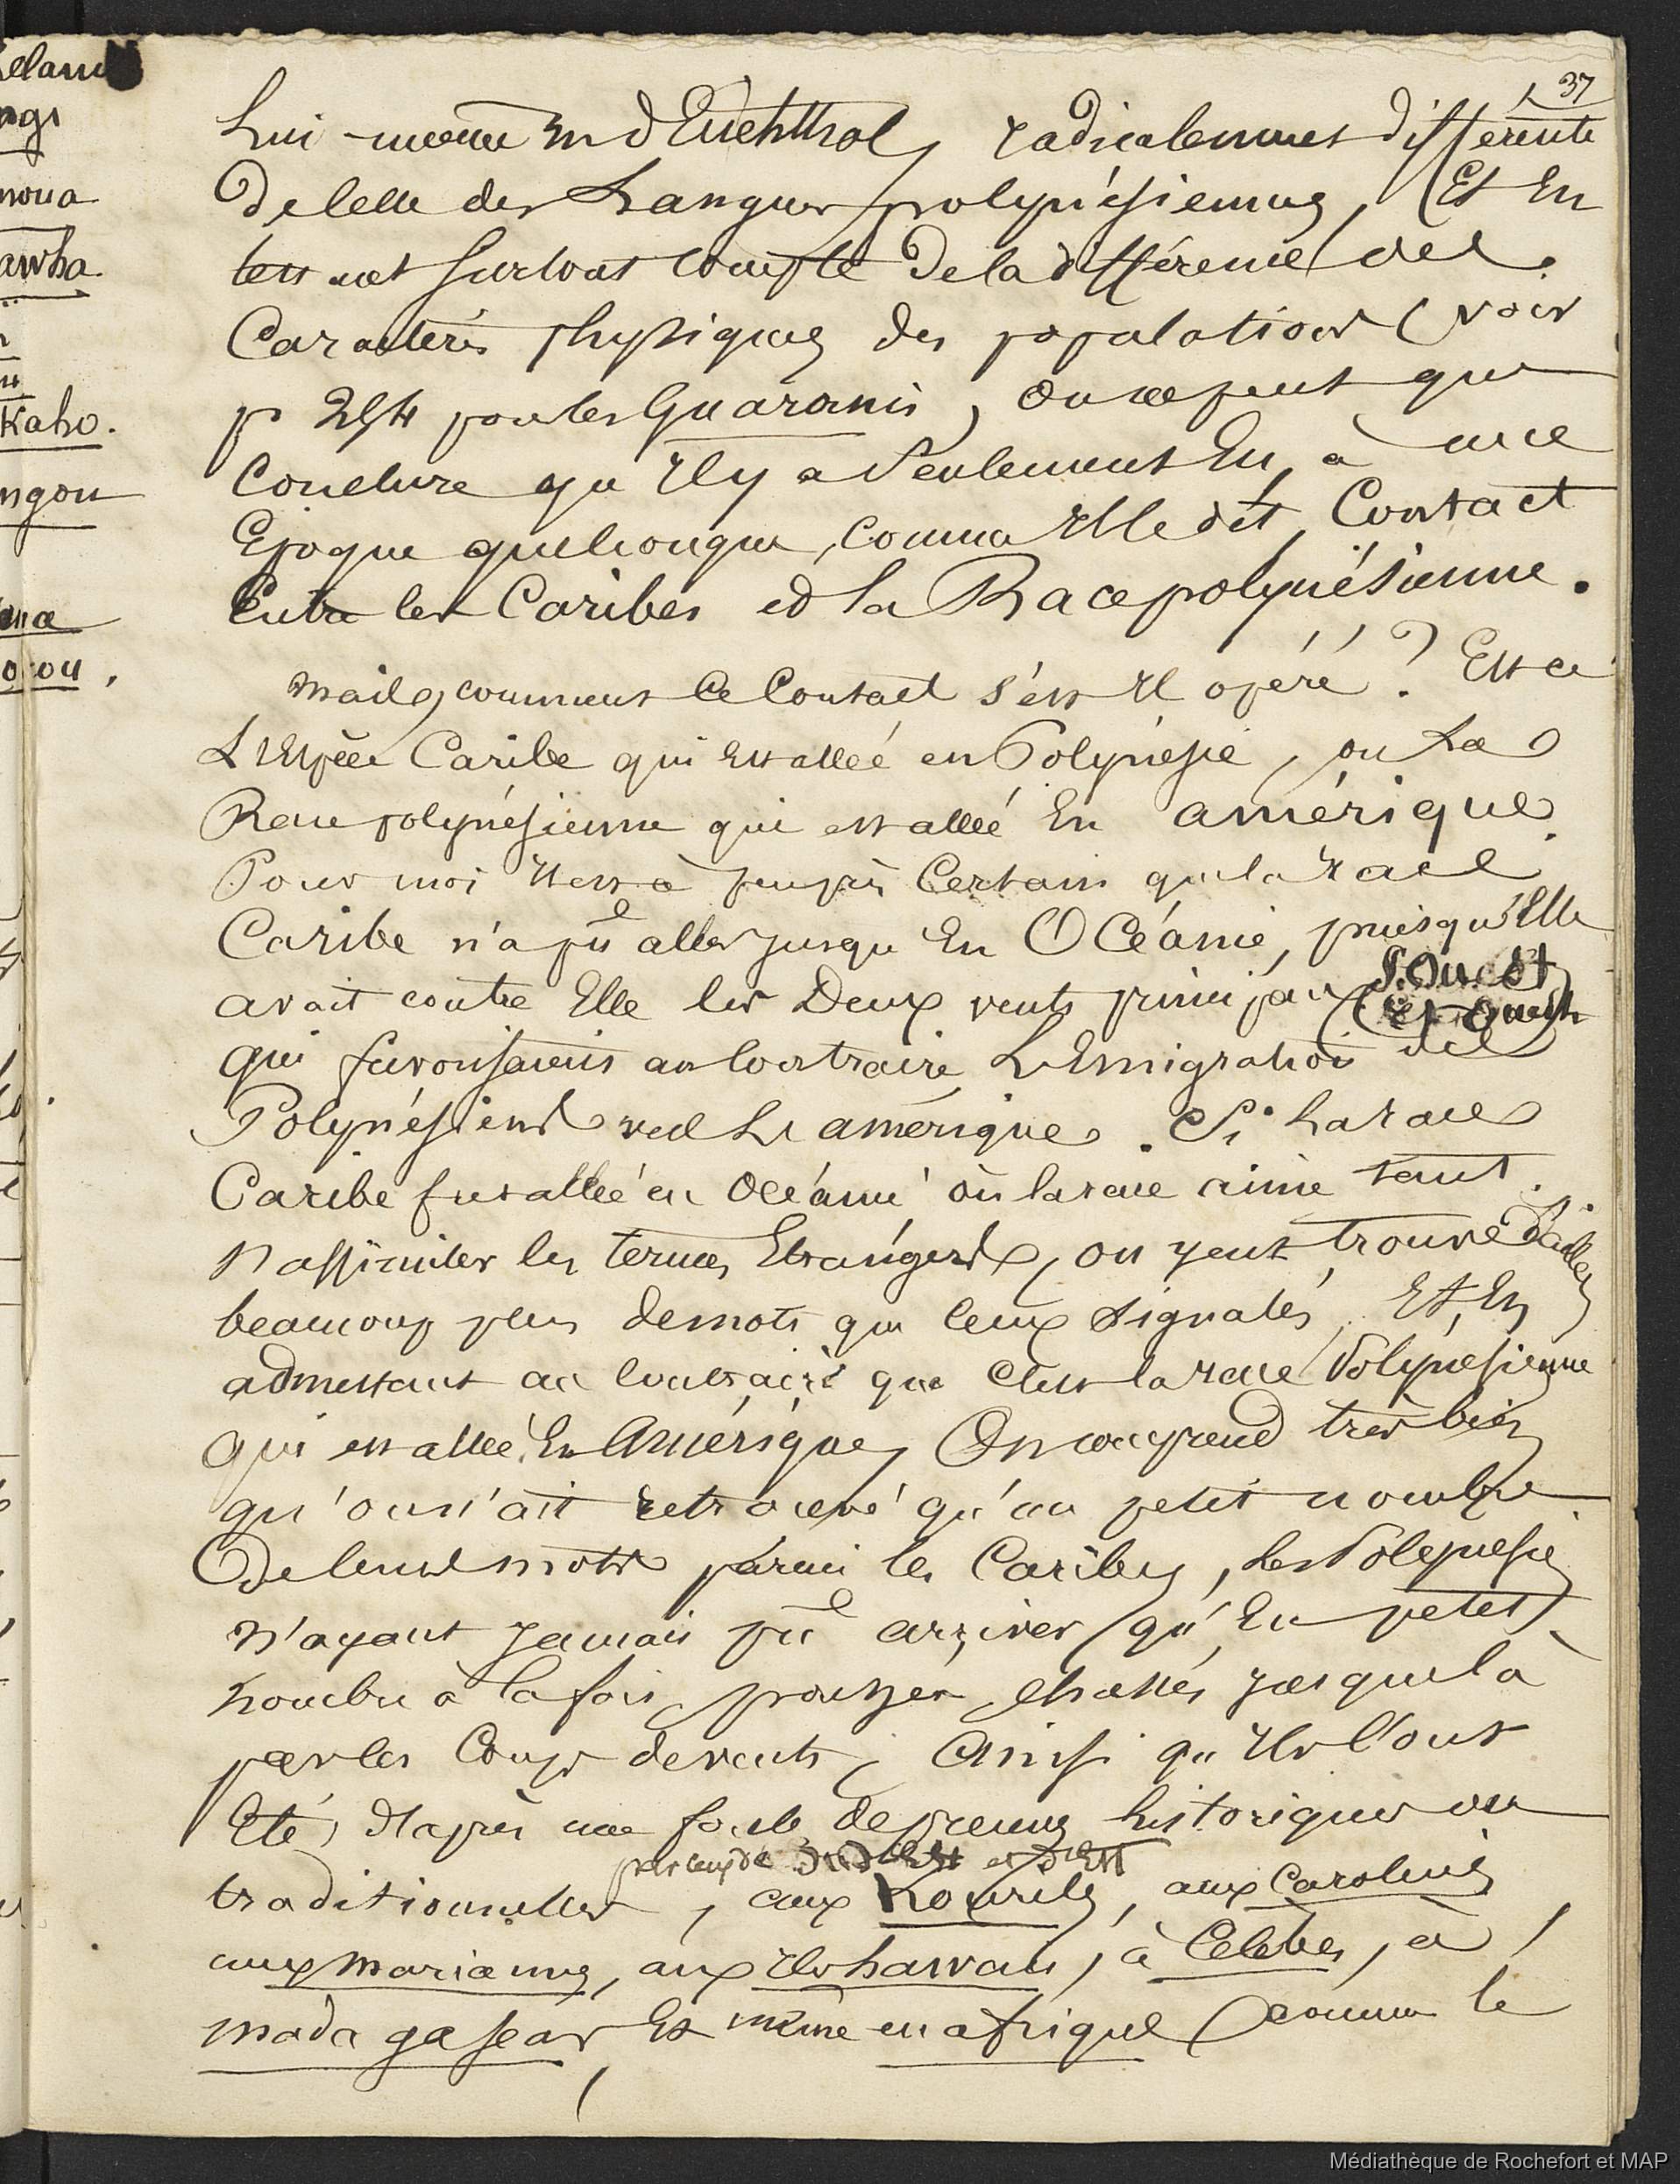 37
Lui-même Mr d'Eichthal, radicalement différente
de celle des Langues polynésiennes, Et En
tenant surtout compte de la différence des
Caractères physiques des populations (voir
p 254 pour les Guaranis, on ne peut que
Conclure qu'Il y a seulement Eu, à une
Epoque quelconque, comme Elle dit, Contact
Entre les Caribes et la Race polynésienne.
Mais comment ce Contact s'est Il opéré? Est ce
L'Espèce Caribe qui est allée en Polynésie, ou La
Race polynésienne qui est allée En amérique.
Pour moi Il est à peu près Certain que la race
Caribe n'a pu aller jusqu'En Océanie, puisqu'Elle
avait contre Elle les Deux vents principaux (S. Ouest
et Ouest)
qui favorisaient au Contraire L'Emigration des
Polynésiens vers L'amérique. Si La race
Caribe fut allée en Océanie où la race aime tant
s'assimiler les termes Etrangers, on y eut trouvé d'ailleurs
beaucoup plus de mots que ceux signalés. Et, En
admettant au Contraire que C'est la race Polynésienne
qui est allée En Amérique, On comprend très bien
qu'on n'ait retrouvé qu'un petit nombre
De leurs mots parmi les Caribes, les Polynésiens
n'ayant jamais pu arriver qu'En petit
nombre à la fois, poussés, chassés jusque là
par les Coups de vents, Ainsi qu'Ils l'ont
Eté, d'après une foule de preuves historiques ou
par les coups de et d'Est
traditionnelles, aux Kouriles, aux Carolines
aux Mariannes, aux Iles havvaii, à Celebes, à
Madagascar Et même en afrique (comme le
elam
ngi
noua
awha
Kaho.
ngou